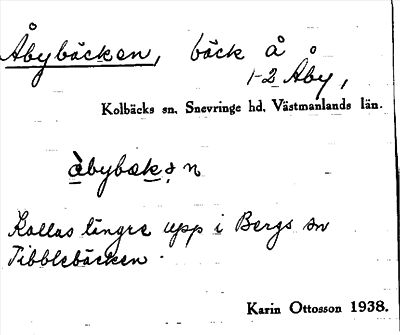 Åbybäcken, bäck å
1-2 Åby,
Kolbäcks sn. Snevringe hd. Västmanlands län.
Kallas längre upp i Bergs sn
Tibblebäcken.
Karin Ottosson 1938.